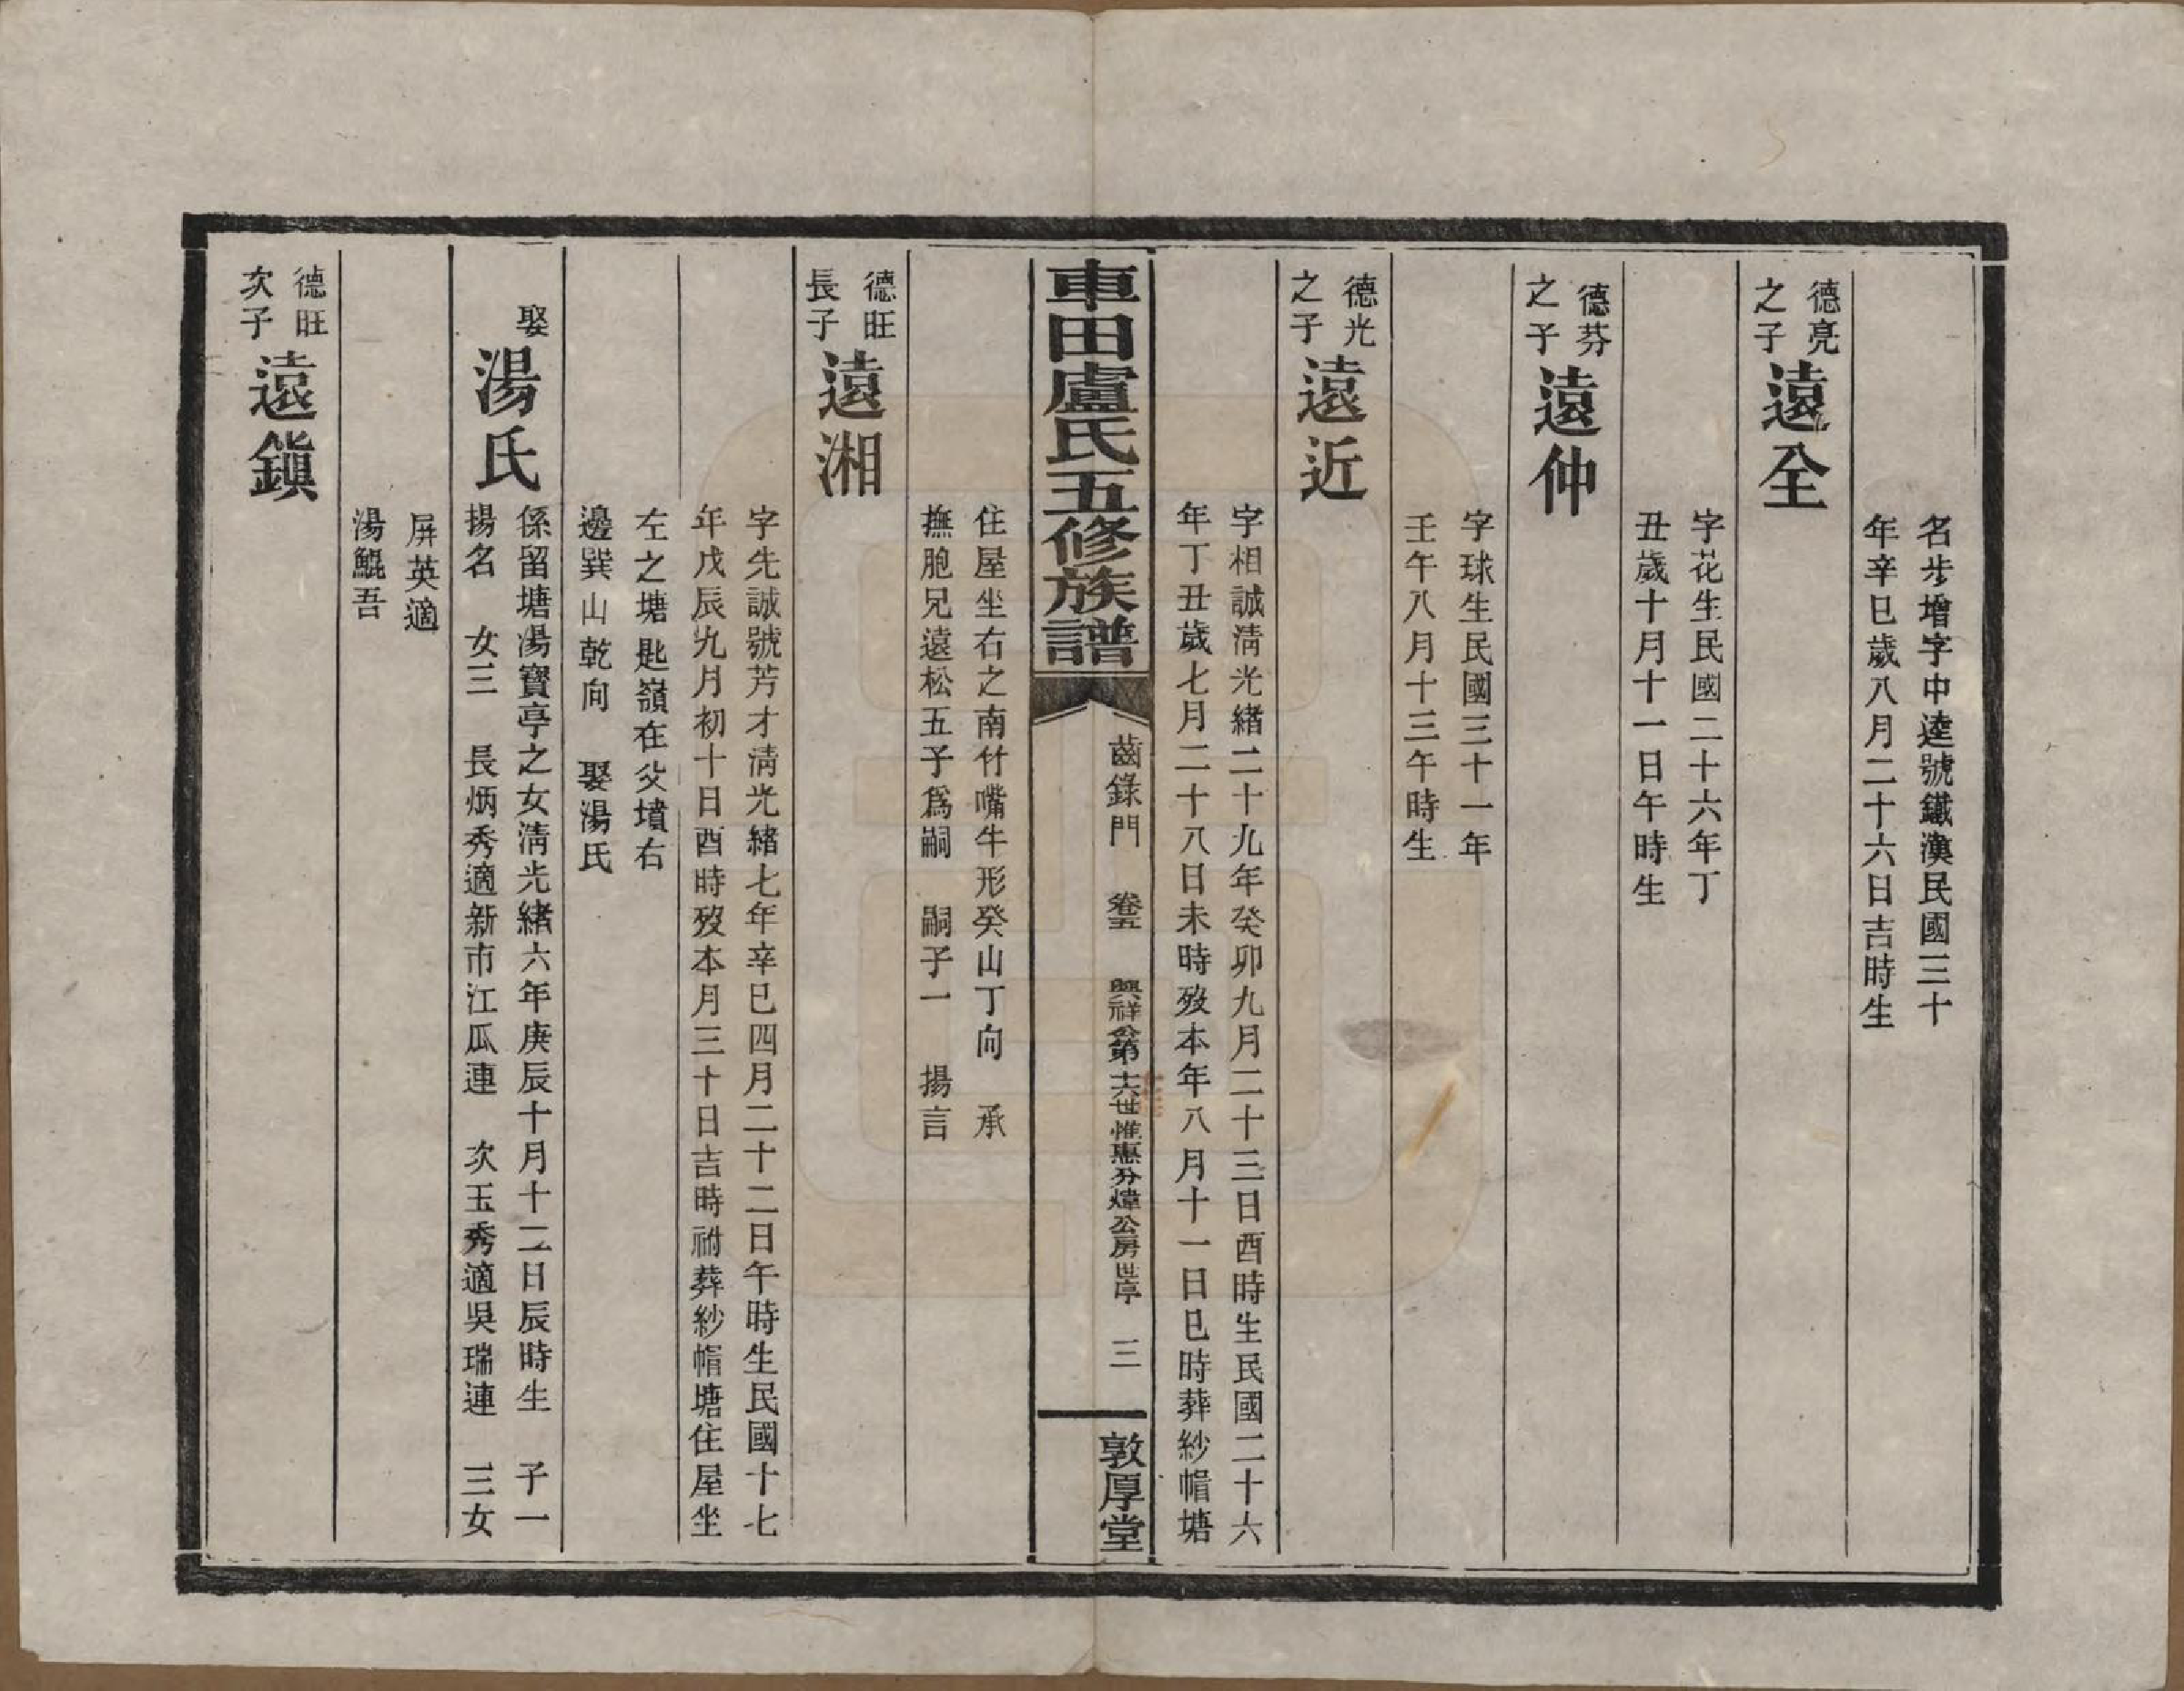 名步增字中逵號鐵漢民國三十
年辛巳歲八月二十六日吉時生
德亮
之子
遠全
字花生民國二十六年丁
丑歲十月十一日午時生
德芬
之子
遠仲
字球生民國三十一年
壬午八月十三午時生
德光
之子
遠近
字相誠清光緒二十九年癸卯九月二十三日酉時生民國二十六
年丁丑歲七月二十八日未時歿本年八月十一日巳時葬紗帽塘
車田盧氏五修族譜
齒錄門 卷五 興祥公第十六世惟惠分煒公房世序 三
敦厚堂
住屋坐右之南竹嘴牛形癸山丁向 承
撫胞兄遠松五子爲嗣 嗣子一 揚言
德旺
長子
遠湘
字先誠號芳才清光緒七年辛巳四月二十二日午時生民國十七
年戊辰九月初十日酉時歿本月三十日吉時祔葬紗帽塘住屋坐
左之塘匙嶺在父墳右
邊巽山乾向 娶湯氏
娶
湯氏
係留塘湯寶亭之女清光緒六年庚辰十月十二日辰時生 子一
揚名 女三 長炳秀適新市江瓜連 次玉秀適吳瑞連 三女
屏英適
湯鯤吾
德旺
次子
遠鎮